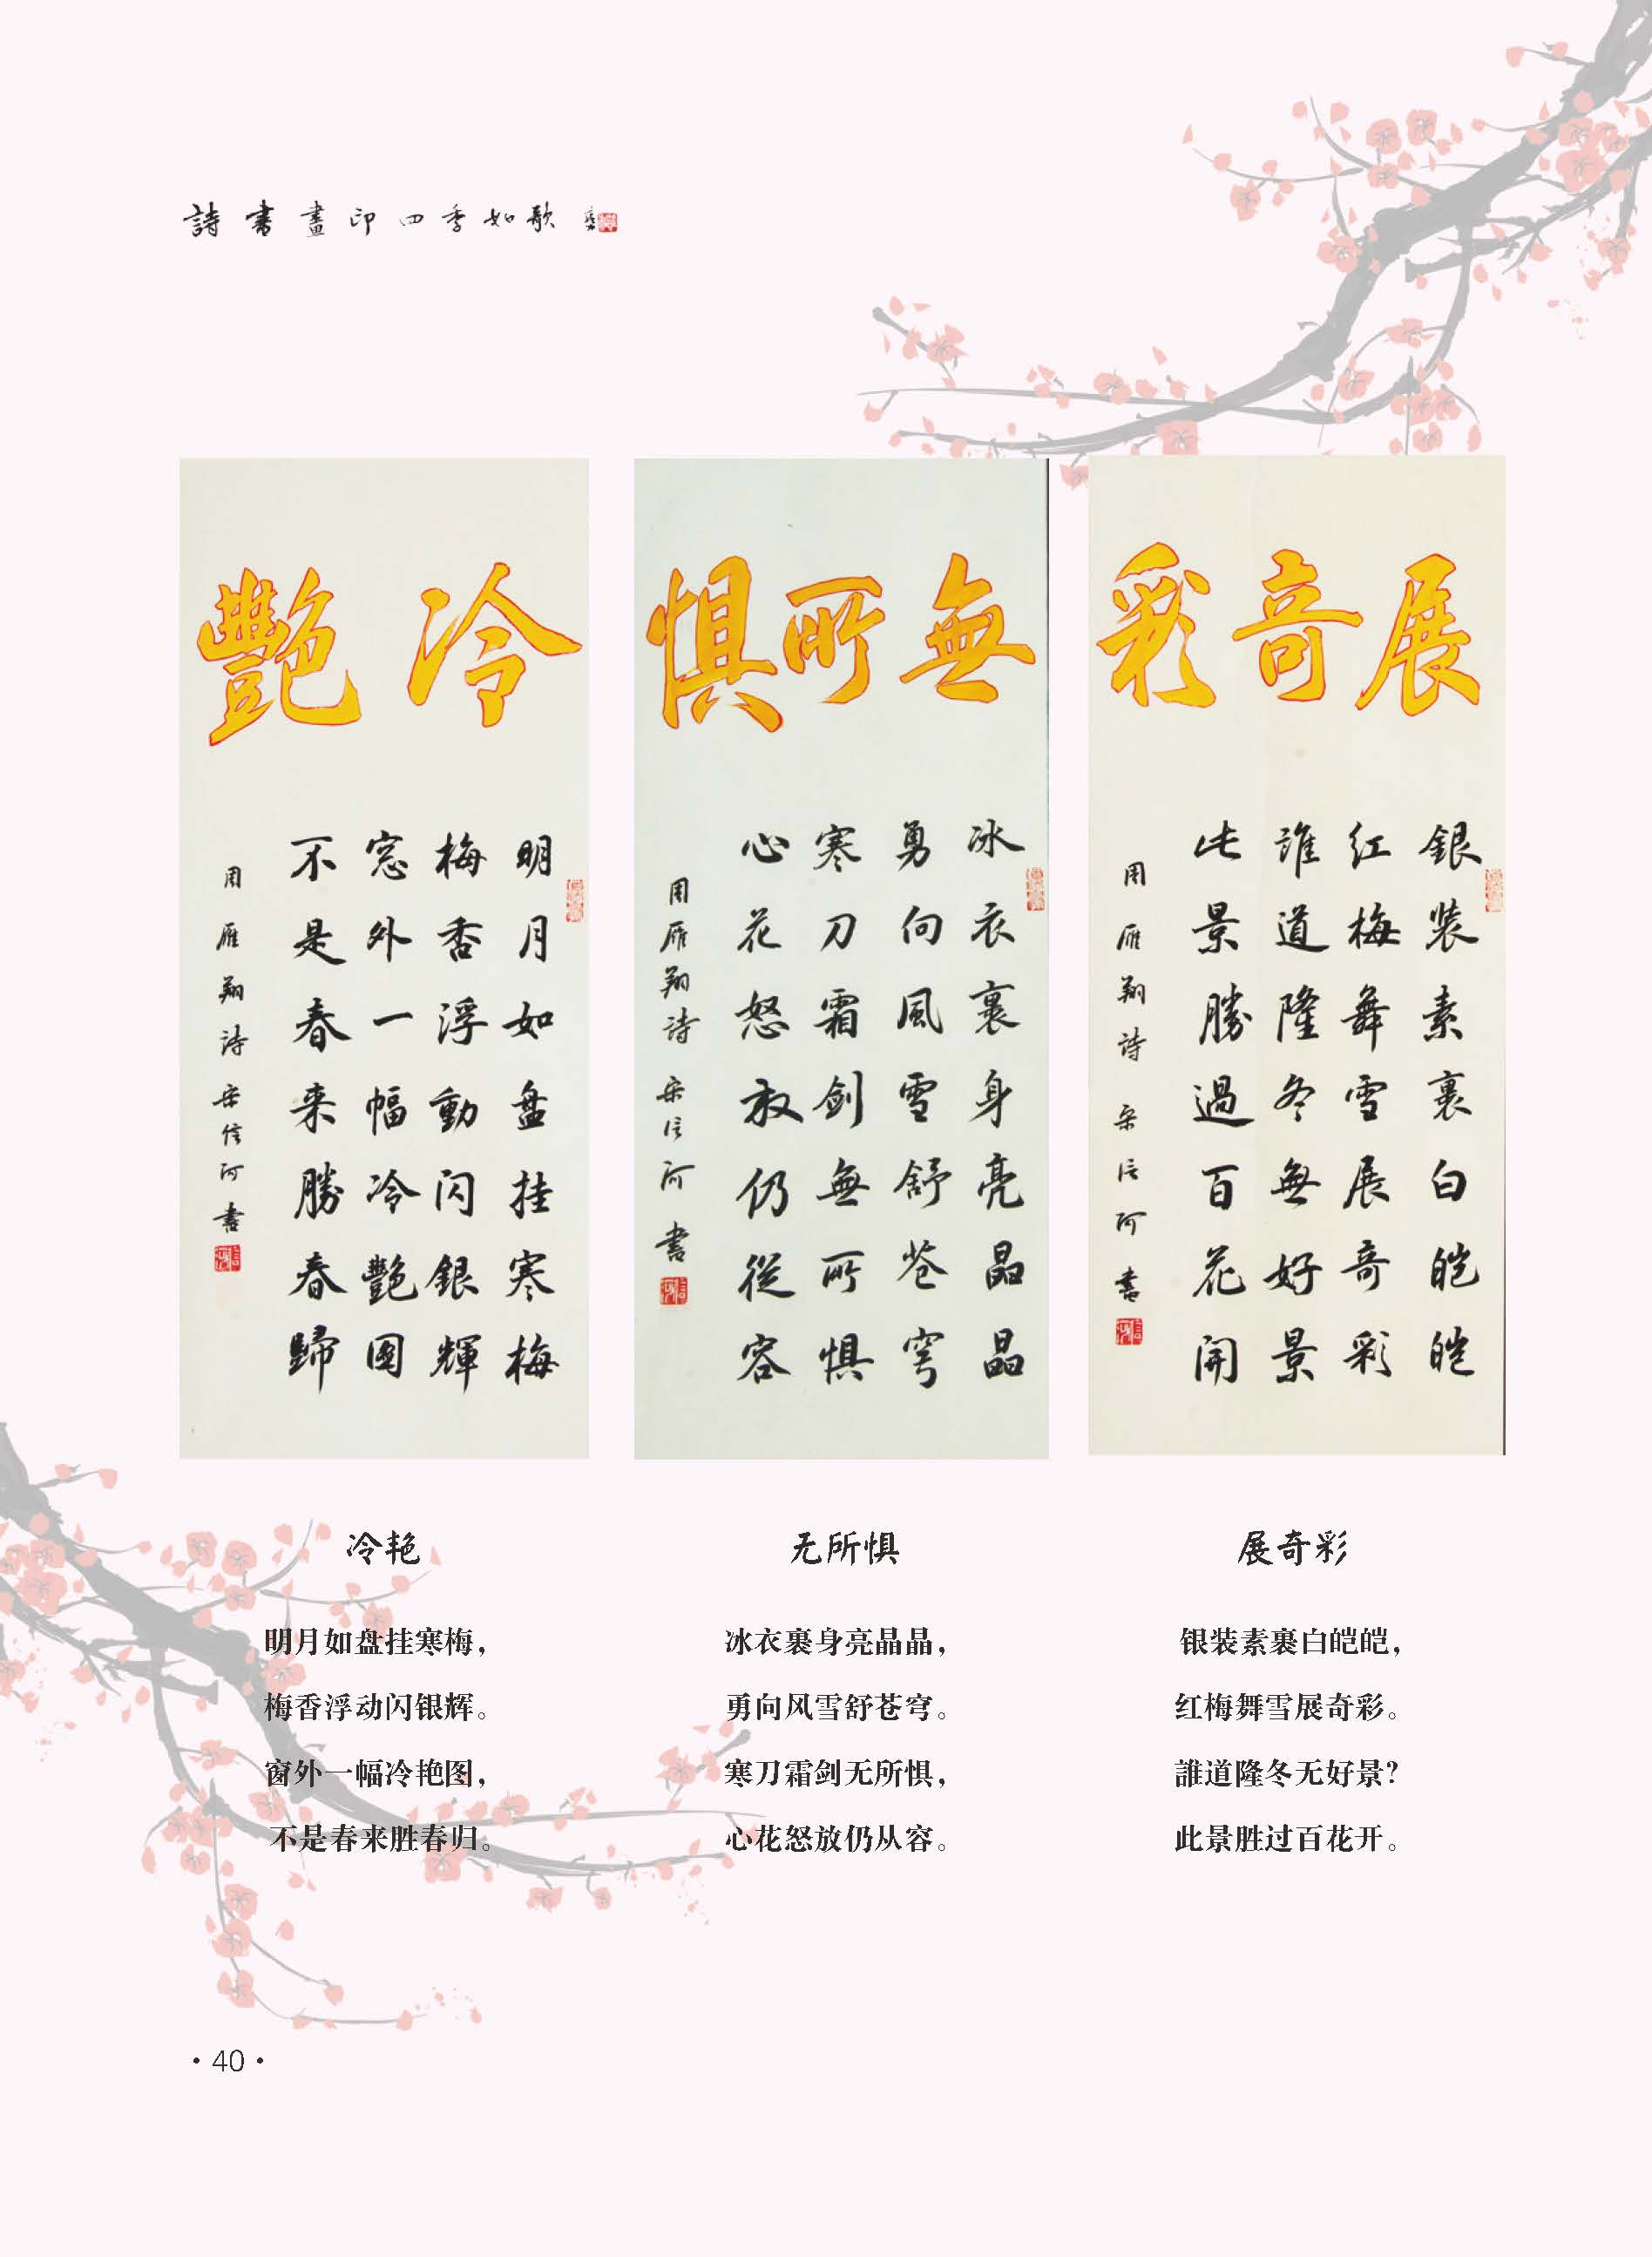 詩書畫印四季如歌
展奇彩
銀装素裹白皑皑
红梅舞雪展奇彩
誰道隆冬無好景
此景勝過百花開
周雁翔詩 宋信河書
無所惧
冰衣裹身亮晶晶
勇向風雪舒苍穹
寒刀霜剑無所惧
心花怒放仍從容
周雁翔詩 宋信河書
冷艷
明月如盘挂寒梅
梅香浮動闪銀輝
窓外一幅冷艷图
不是春来勝春歸
周雁翔詩 宋信河書
冷艳
明月如盘挂寒梅，
梅香浮动闪银辉。
窗外一幅冷艳图，
不是春来胜春归。
无所惧
冰衣裹身亮晶晶，
勇向风雪舒苍穹。
寒刀霜剑无所惧，
心花怒放仍从容。
展奇彩
银装素裹白皑皑，
红梅舞雪展奇彩。
誰道隆冬无好景？
此景胜过百花开。
·40·